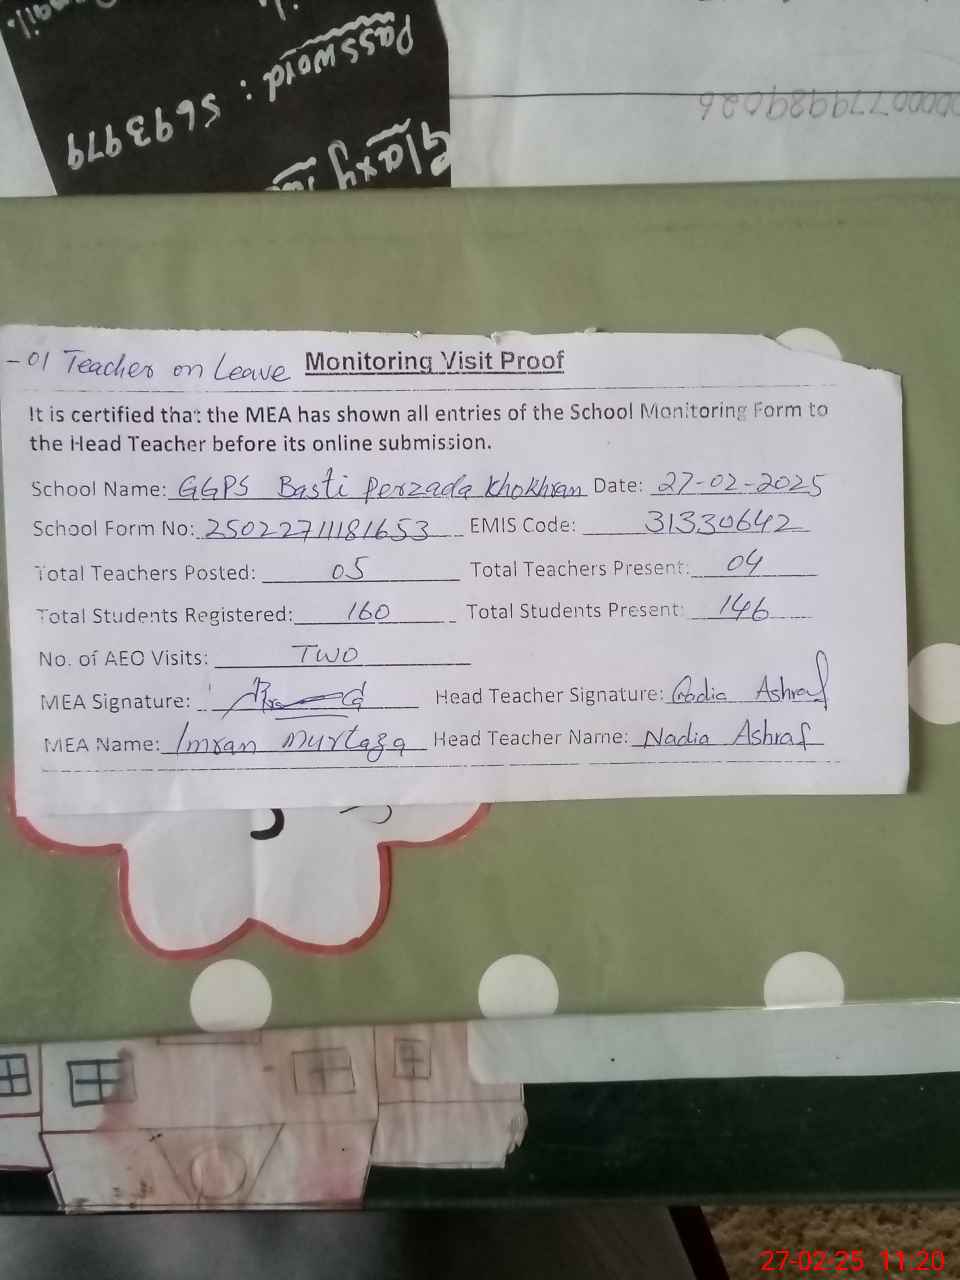 Password : 5693979
Glaxy
- 01 Teacher on Leave Monitoring Visit Proof
It is certified that the MEA has shown all entries of the School Monitoring Form to
the Head Teacher before its online submission.
School Name: GGPS Basti Perzada Khokhran Date: 27-02-2025
School Form No: 25022711181653 EMIS Code: 31330642
Total Teachers Posted: 05 Total Teachers Present: 04
Total Students Registered: 160 Total Students Present: 146
No. of AEO Visits: TWO
MEA Signature: Head Teacher Signature: Nadia Ashraf
MEA Name: Imran Murtaza Head Teacher Name: Nadia Ashraf
27-02-25 11:20